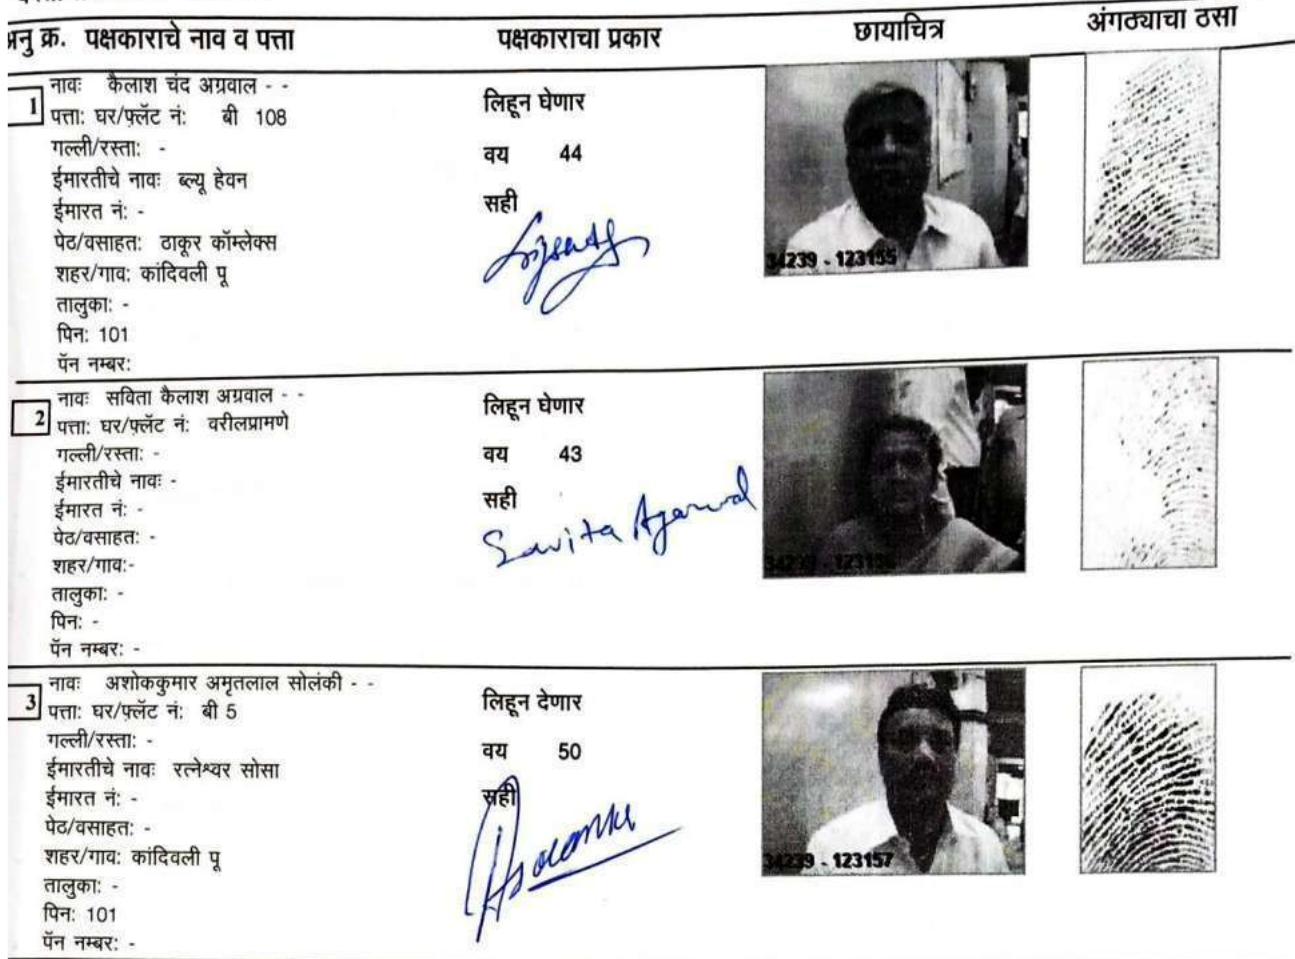 अनु क्र. पक्षकाराचे नाव व पत्ता पक्षकाराचा प्रकार छायाचित्र अंगठ्याचा ठसा
1
नावः कैलाश चंद अग्रवाल - -
पत्ता: घर/फ़्लॅट नं: बी 108
गल्ली/रस्ता: -
ईमारतीचे नावः ब्ल्यू हेवन
ईमारत नं: -
पेठ/वसाहत: ठाकूर कॉम्लेक्स
शहर/गाव: कांदिवली पू
तालुका: -
पिन: 101
पॅन नम्बर:
लिहून घेणार
वय 44
सही
34239 - 123155
2
नावः सविता कैलाश अग्रवाल - -
पत्ता: घर/फ़्लॅट नं: वरीलप्रामणे
गल्ली/रस्ता: -
ईमारतीचे नावः -
ईमारत नं: -
पेठ/वसाहत: -
शहर/गाव:-
तालुका: -
पिन: -
पॅन नम्बर: -
लिहून घेणार
वय 43
सही
Savita Agarwal
34239 - 123156
3
नावः अशोककुमार अमृतलाल सोलंकी - -
पत्ता: घर/फ़्लॅट नं: बी 5
गल्ली/रस्ता: -
ईमारतीचे नावः रत्नेश्वर सोसा
ईमारत नं: -
पेठ/वसाहत: -
शहर/गाव: कांदिवली पू
तालुका: -
पिन: 101
पॅन नम्बर: -
लिहून देणार
वय 50
सही
34239 - 123157